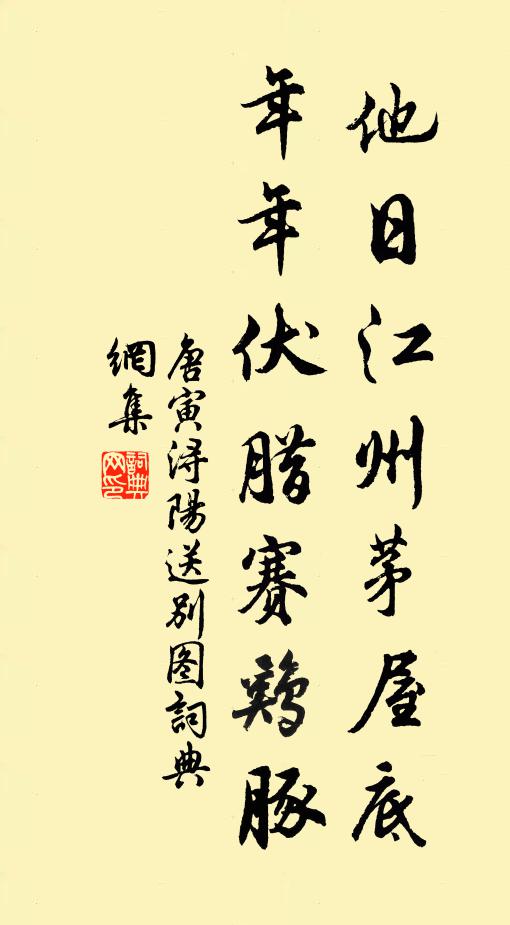 他日江州茅屋底
年年伏腊賽鷄豚
唐寅潯陽送别图詞典
網集
詞典
网印